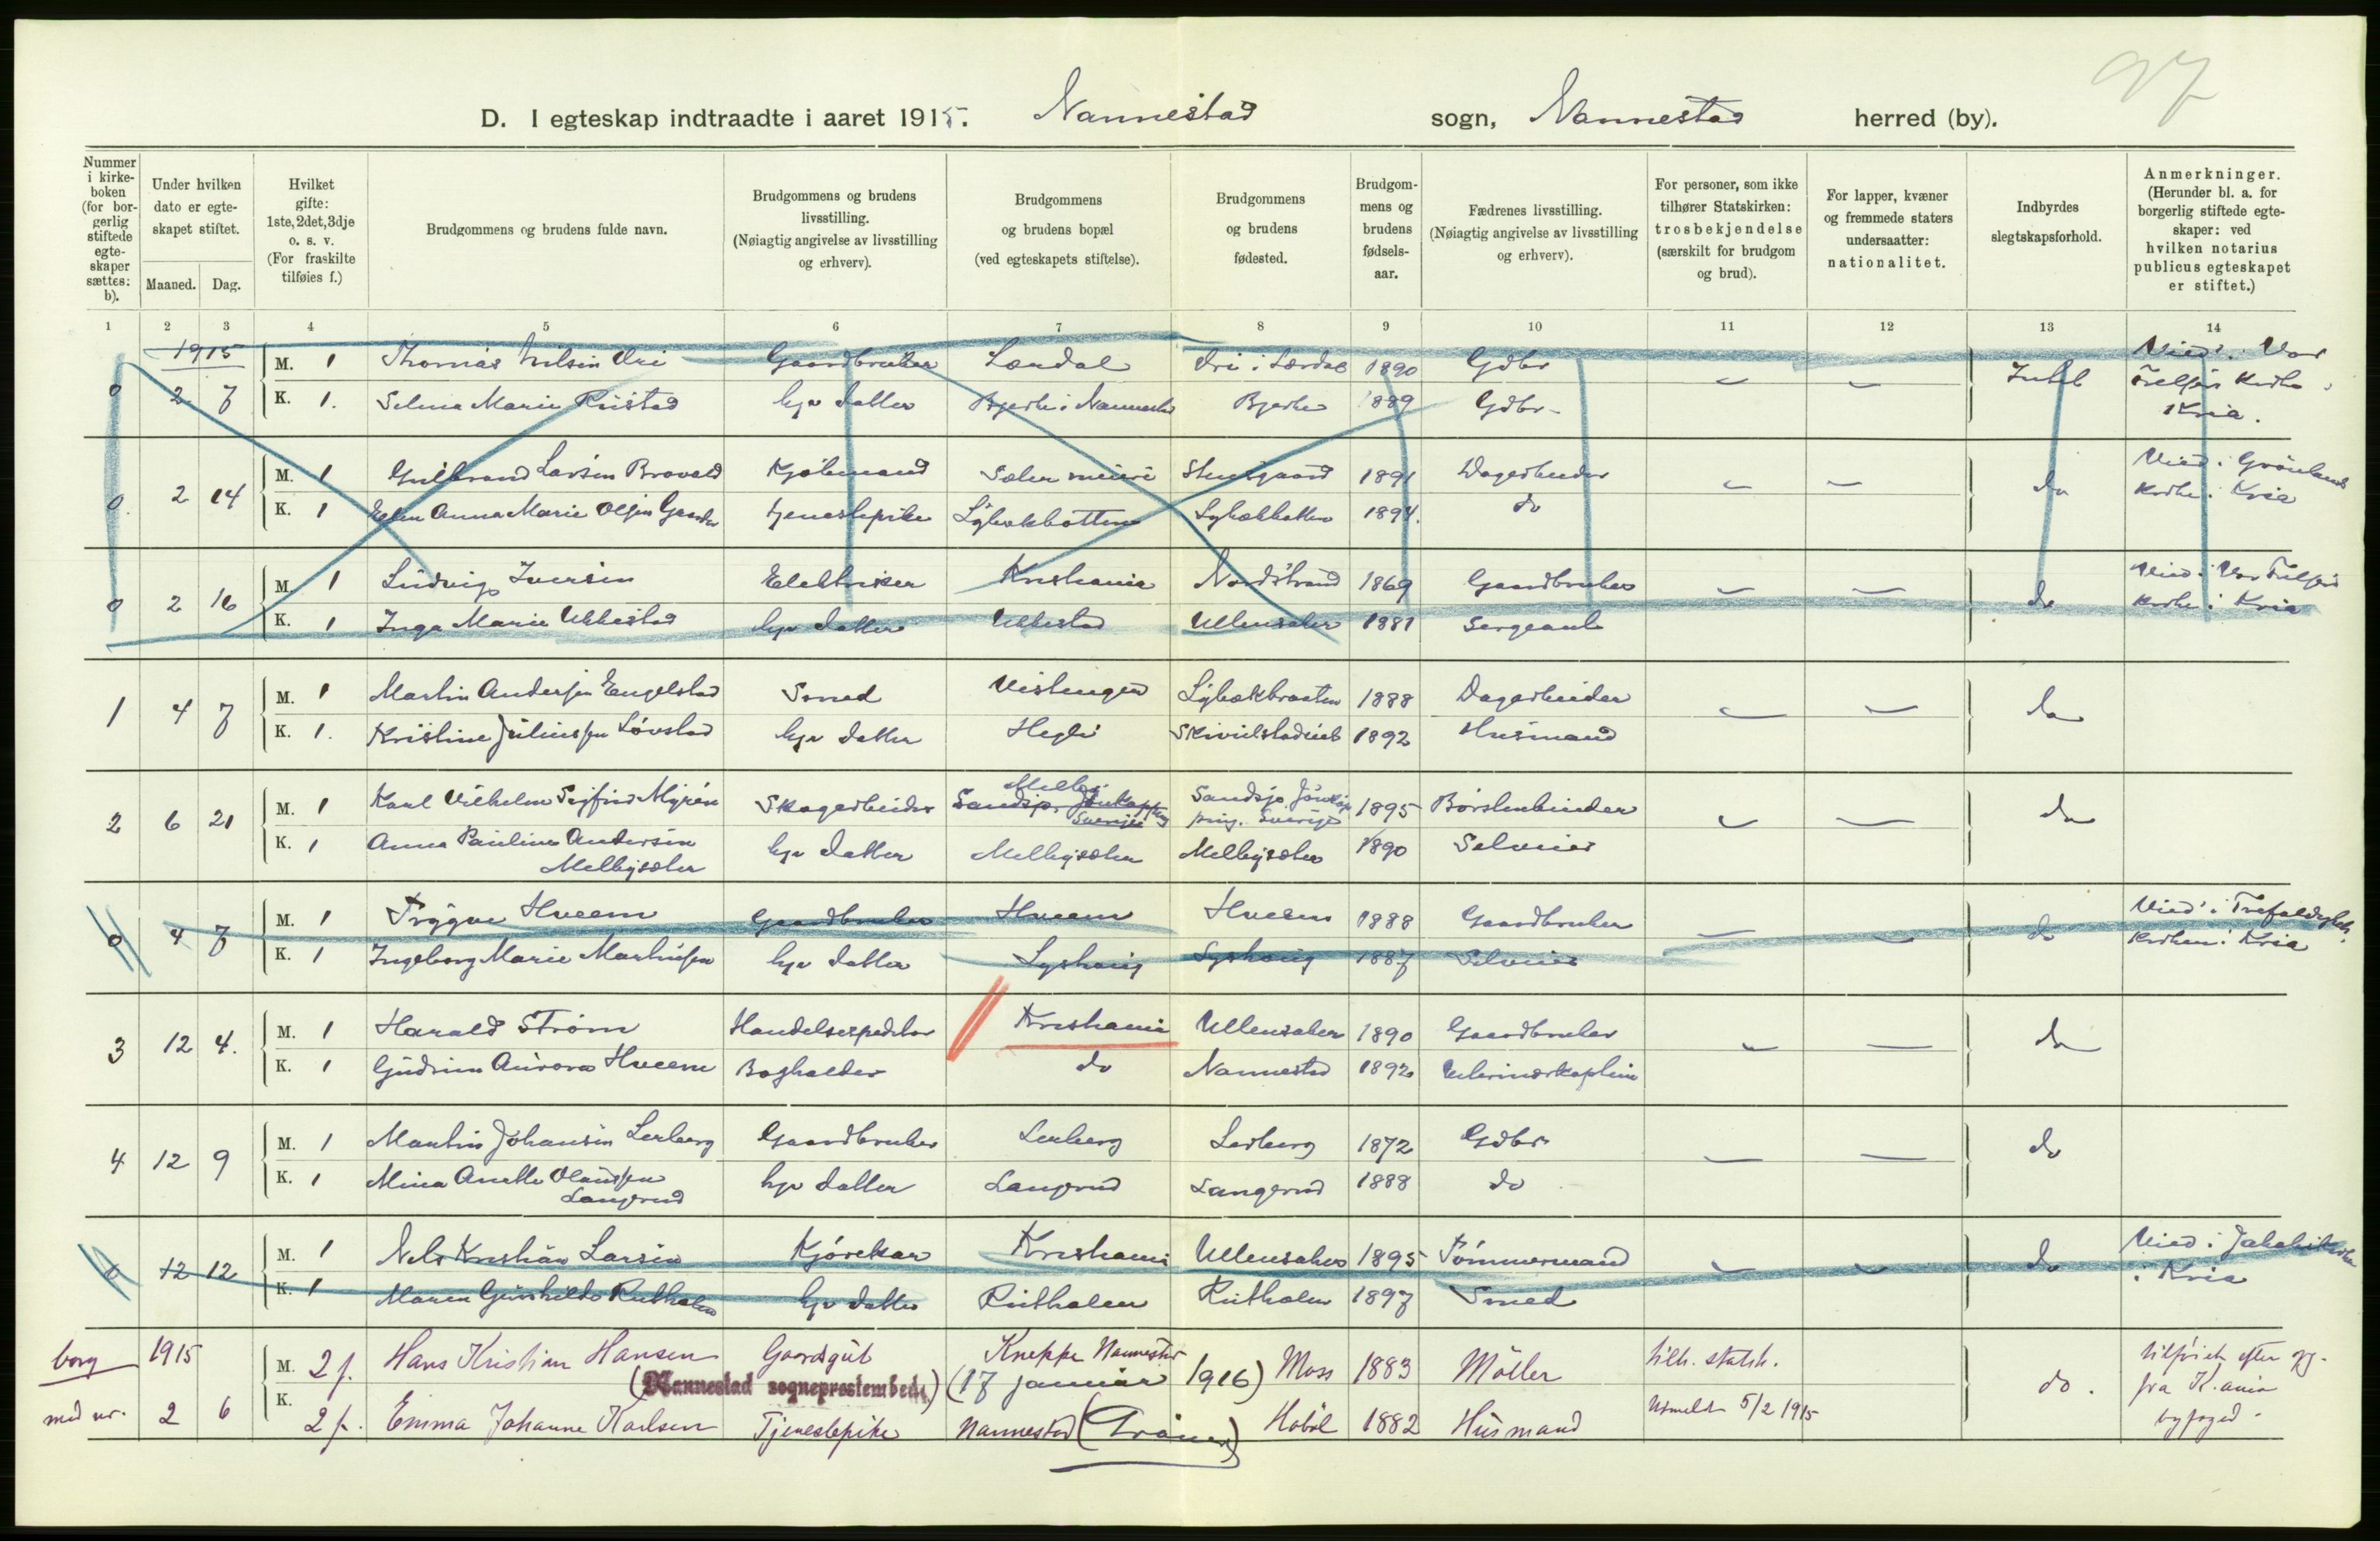 97
D. I egteskap indtraadte i aaret 1915. Nannestad sogn, Nannestad herred (by).
Nummer i kirkeboken (for borgerlig stiftede egteskaper sættes: b).
Under hvilken dato er egteskapet stiftet.
Maaned. Dag.
Hvilket gifte: 1ste, 2det, 3dje o. s. v. (For fraskilte tilføies f.)
Brudgommens og brudens fulde navn.
Brudgommens og brudens livsstilling. (Nøiagtig angivelse av livsstilling og erhverv).
Brudgommens og brudens bopæl (ved egteskapets stiftelse).
Brudgommens og brudens fødested.
Brudgommens og brudens fødselsaar.
Fædrenes livsstilling. (Nøiagtig angivelse av livsstilling og erhverv).
For personer, som ikke tilhører Statskirken: trosbekjendelse (særskilt for brudgom og brud).
For lapper, kvæner og fremmede staters undersaatter: nationalitet.
Indbyrdes slegtskapsforhold.
Anmerkninger. (Herunder bl. a. for borgerlig stiftede egteskaper: ved hvilken notarius publicus egteskapet er stiftet.)
1 2 3 4 5 6 7 8 9 10 11 12 13 14
1915
0 2 7 M. 1 Thomas Nilsen Eri Gaardbruker Lærdal Eri i Lærdal 1890 Gdbr — — Intet Viet i Vor Frelsers kirke, Kria.
K. 1. Selma Marie Ristad hjv datter Bjerke i Nannestad Bjerke 1889 Gdbr.
0. 2 14 M. 1 Gulbrand Larsen Bravold Kjøbmand Sæter meieri Stensgaard 1891 Dagarbeider — — do Viet i Grønlands kirke i Kria
K. 1 Ellen Anna Marie Olsen tjenestepike Lybækbotten Lybækbotten 1894. do
0 2 16 M. 1 Ludvig Iversen Elektriker Kristiania Nordstrand 1869 Gaardbruker — — do Viet i Vor Frelsers kirke i Kria
K. 1 Inga Marie Ukkestad hjv datter Ukkestad Ullensaker 1881 Sergeant
1 4 7 M. 1 Martin Andersen Engelstad Smed Vestengen Lybækbraaten 1888 Dagarbeider — — do
K. 1. Kristine Juliussen Løvstad hjv datter Hegli 1892 Husmand
2 6 21 M. 1 Karl Vilhelm Sigfrid Myrén Skogarbeider Melby Sandsjø, Jönköping Sverige Sandsjö Jönköping. Sverige 1895 Børstenbinder — — do
K. 1 Anna Pauline Andersen Melbysæter hjv datter Melbysæter Melbysæter 1890 Selveier
0 4 7 M. 1 Trygve Hveem Gaardbruker Hveem Hveem 1888 Gaardbruker — — do Viet i Trefoldigheds kirken i Kria
K. 1 Ingeborg Marie Martinsen hjv datter Lyshaug Lyshaug 1887 Selveier
3 12 4. M. 1 Harald Strøm Handelsexpeditør Kristiania Ullensaker 1890 Gaardbruker — — do
K. 1 Gudrun Aurora Hveem Bogholder do Nannestad 1892 Veterinærkaptein
4 12 9 M. 1 Martin Johansen Lerberg Gaardbruker Lerberg Lerberg 1872 Gdbr. — — do
K. 1 Mina Anette Olaussen Langerud hjv datter Langerud Langerud 1888 do
0 12 12 M. 1 Nels Kristian Larsen Kjørekar Kristiania Ullensaker 1895 Tømmermand — — do Viet i Jakobskirke i Kria
K. 1 Maren Gunhilde Rutholen hjv datter Rutholen Rutholen 1897 Smed
borg 1915 M. 2 f. Hans Kristian Hansen Gaardsgut Kneppe Nannestad Moss 1883 Møller tilh. statsk. do. tilføiet efter opg. fra K.ania byfoged.
(Nannestad sogneprestembede) (17 januar 1916)
med nr. 2 6 K. 2 f. Emma Johanne Karlsen Tjenestepike Nannestad Hobøl 1882 Husmand Utmeldt 5/2 1915